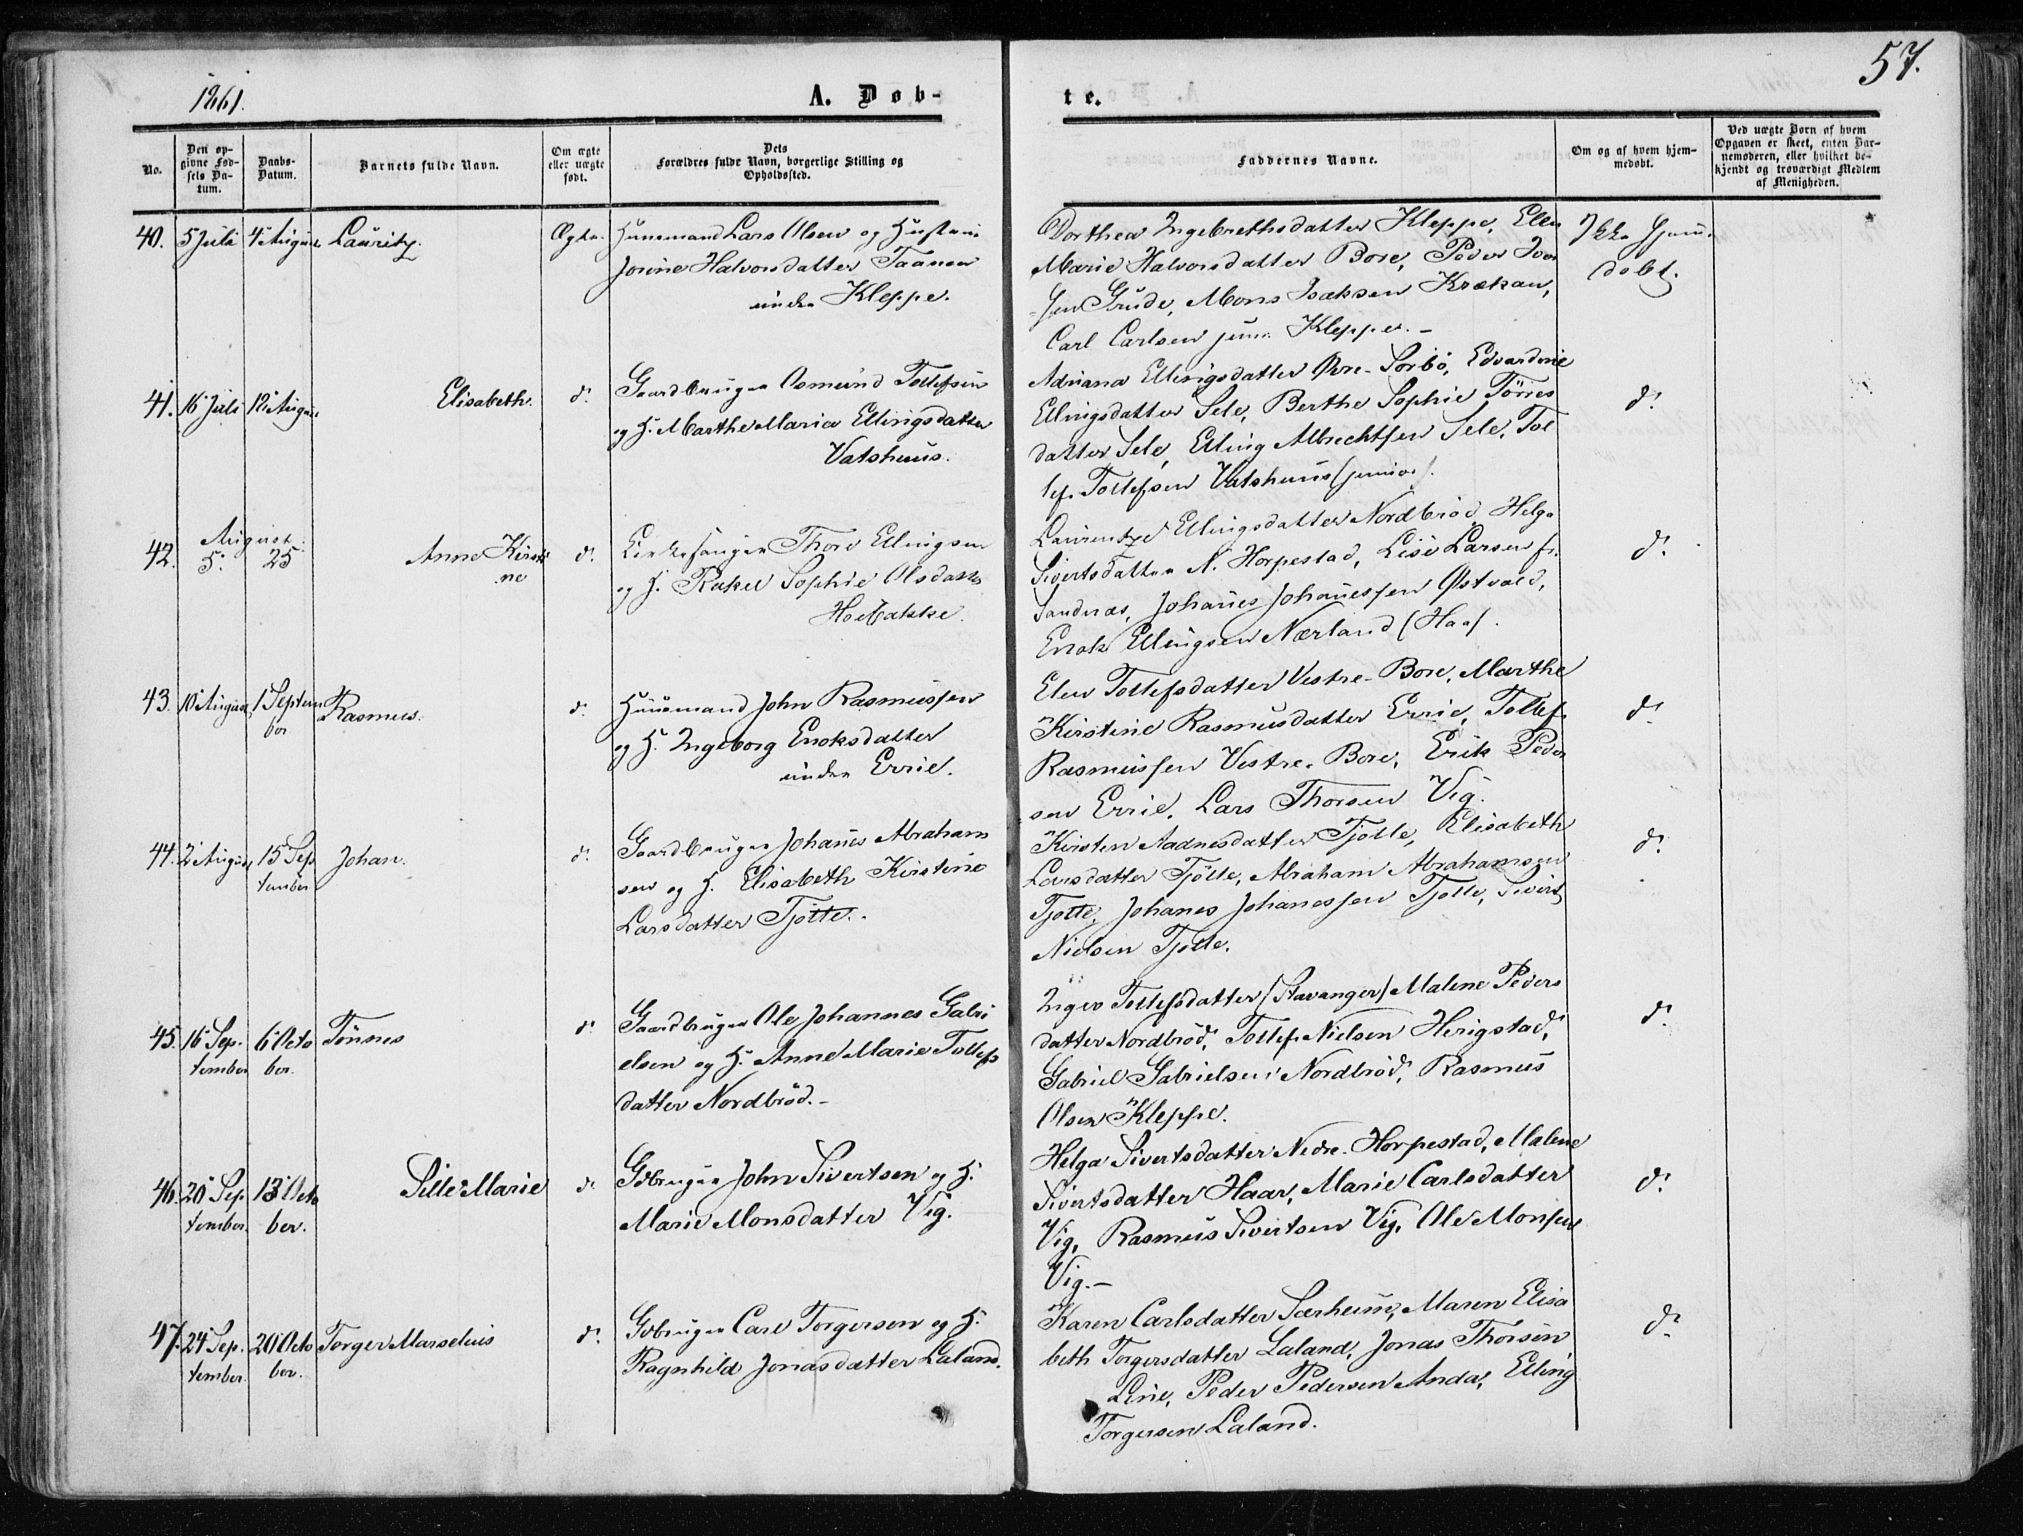 57.
1861.
A. Døb-
te.
No.
Den op-
givne Fød-
sels Da-
tum.
Daabs-
Datum.
Barnets fulde Navn.
Om ægte
eller uægte
født.
Dets
Forældres fulde Navn, borgerlige Stilling og
Opholdssted.
Faddernes Navne.
Om og af hvem hjem-
medøbt.
Ved uægte Børn af hvem
Opgaven er skeet, enten Bar-
nemoderen, eller hvilket be-
kjendt og troværdigt Medlem
af Menigheden.
40. 5 Juli 4 August Lauritz. Ægte. Huusmand Lars Olsen og Hustru
Jorine Halvorsdatter Taanen
under Kleppe.
Dorthea Ingebrethsdatter Kleppe, Ellen
Marie Halvorsdatter Bore, Peder Iver
sen Grude, Mons Isaksen Krækan,
Carl Carlsen jun. Kleppe.-
Ikke hjem-
døbt.
41. 16 Juli 12 August Elisabeth. d. Gaardbruger Osmund Tollefsen
og H. Marthe Maria Ellingsdatter
Vatshuus.
Adriana Ellingsdatter Sørbø, Edvardine
Ellingsdatter Sele, Berthe Sophie Tørres
datter Sele, Elling Albrechtsen Sele, Tol
lef Tollefsen Vatshuus (junior).
d.
42. August
5. 25 Anne Kirsti
ne d. Kirkesanger Thore Ellingsen
og H. Rakel Sophie Olsdatter
Hoibakke.
Laurentze Ellingsdatter Nordbrød, Helga
Sivertsdatter N. Horpestad, Lise Larsen fr.
Sandnæs, Johanes Johanessen Østvold,
Enok Ellingsen Nærland (Haa).
d.
43. 10 August 1 Septem
ber Rasmus. d. Huusmand John Rasmussen
og H. Ingeborg Enoksdatter
under Errie.
Elen Tollefsdatter Vestre-Bore, Marthe
Kirstine Rasmusdatter Errie, Tollef
Rasmussen Vestre-Bore, Erik Peder
sen Errie, Lars Thorsen Vig.
d.
44. 2 August 15 Sep
tember Johan. d. Gaardbruger Johanes Abraham
sen og H. Elisabeth Kirstine
Larsdatter Tjøtte.
Kirsten Aadnesdatter Tjøtte, Elisabeth
Larsdatter Tjøtte, Abraham Abrahamsen
Tjøtte, Johanes Johanessen Tjøtte, Sivert
Nielsen Tjøtte.
d.
45. 16 Sep.
tember 6 Octo
ber. Tønnes d. Gaardbruger Ole Johannes Gabri
elsen og H. Anne Marie Tollefs
datter Nordbrød.-
Inger Tollefsdatter (Stavanger) Malene Peders
datter Nordbrød, Tollef Nielsen Herigstad,
Gabriel Gabrielsen Nordbrød, Rasmus
Olsen Kleppe.
d.
46. 20 Sep.
tember 13 Octo
ber. Sille Marie d. Gdbruger John Sivertsen og H.
Marie Monsdatter Vig.
Helga Sivertsdatter Nedre-Horpestad, Malene
Sivertsdatter Haar, Marie Carlsdatter
Vig, Rasmus Sivertsen Vig, Ole Monsen
Vig.-
d.
47. 24 Sep.
tember. 20 Octo
ber. Torger Marselius d. Gdbruger Carl Torgersen og H.
Ragnhild Jonasdatter Laland.
Karen Carlsdatter Særheim, Maren Elisa
beth Torgersdatter Laland, Jonas Thorsen
Line, Peder Pedersen Anda, Elling
Torgersen Laland.
d.